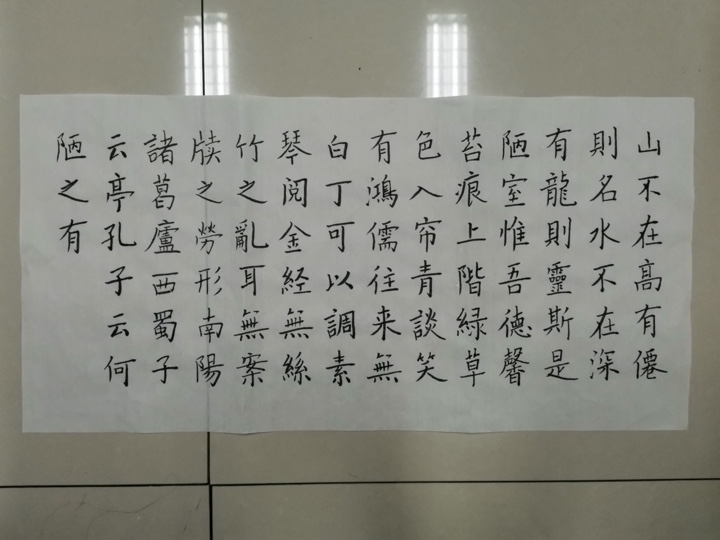 山不在高有僊
則名水不在深
有龍則靈斯是
陋室惟吾德馨
苔痕上階緑草
色入帘青談笑
有鴻儒往来無
白丁可以調素
琴閲金経無絲
竹之亂耳無案
牍之勞形南陽
諸葛廬西蜀子
云亭孔子云何
陋之有